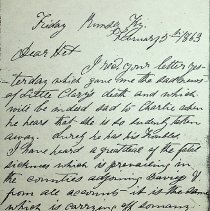 Friday Ky.
February 5th 1863
Dear
I rec'd your letter yes-
terday which gave me the sad news
of Little Clary's death and which
will be indeed sad to Charlie when
he hear that she is so suddenly taken
away. Surely he has his troubles
I have heard a great deal of the fatal
sickness which is prevailing in
the counties adjoining
from all accounts it is the same
which is carrying off so many